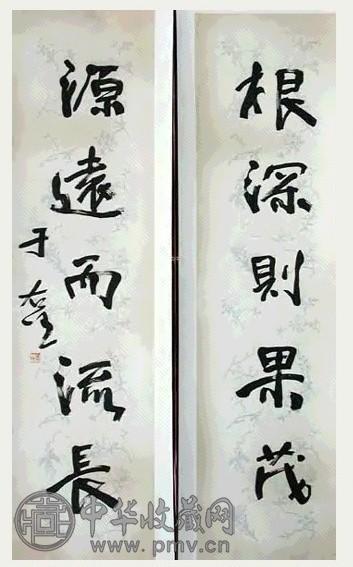 根深則果茂
源遠而流長
于右任
中华收藏网
www.pmv.cn